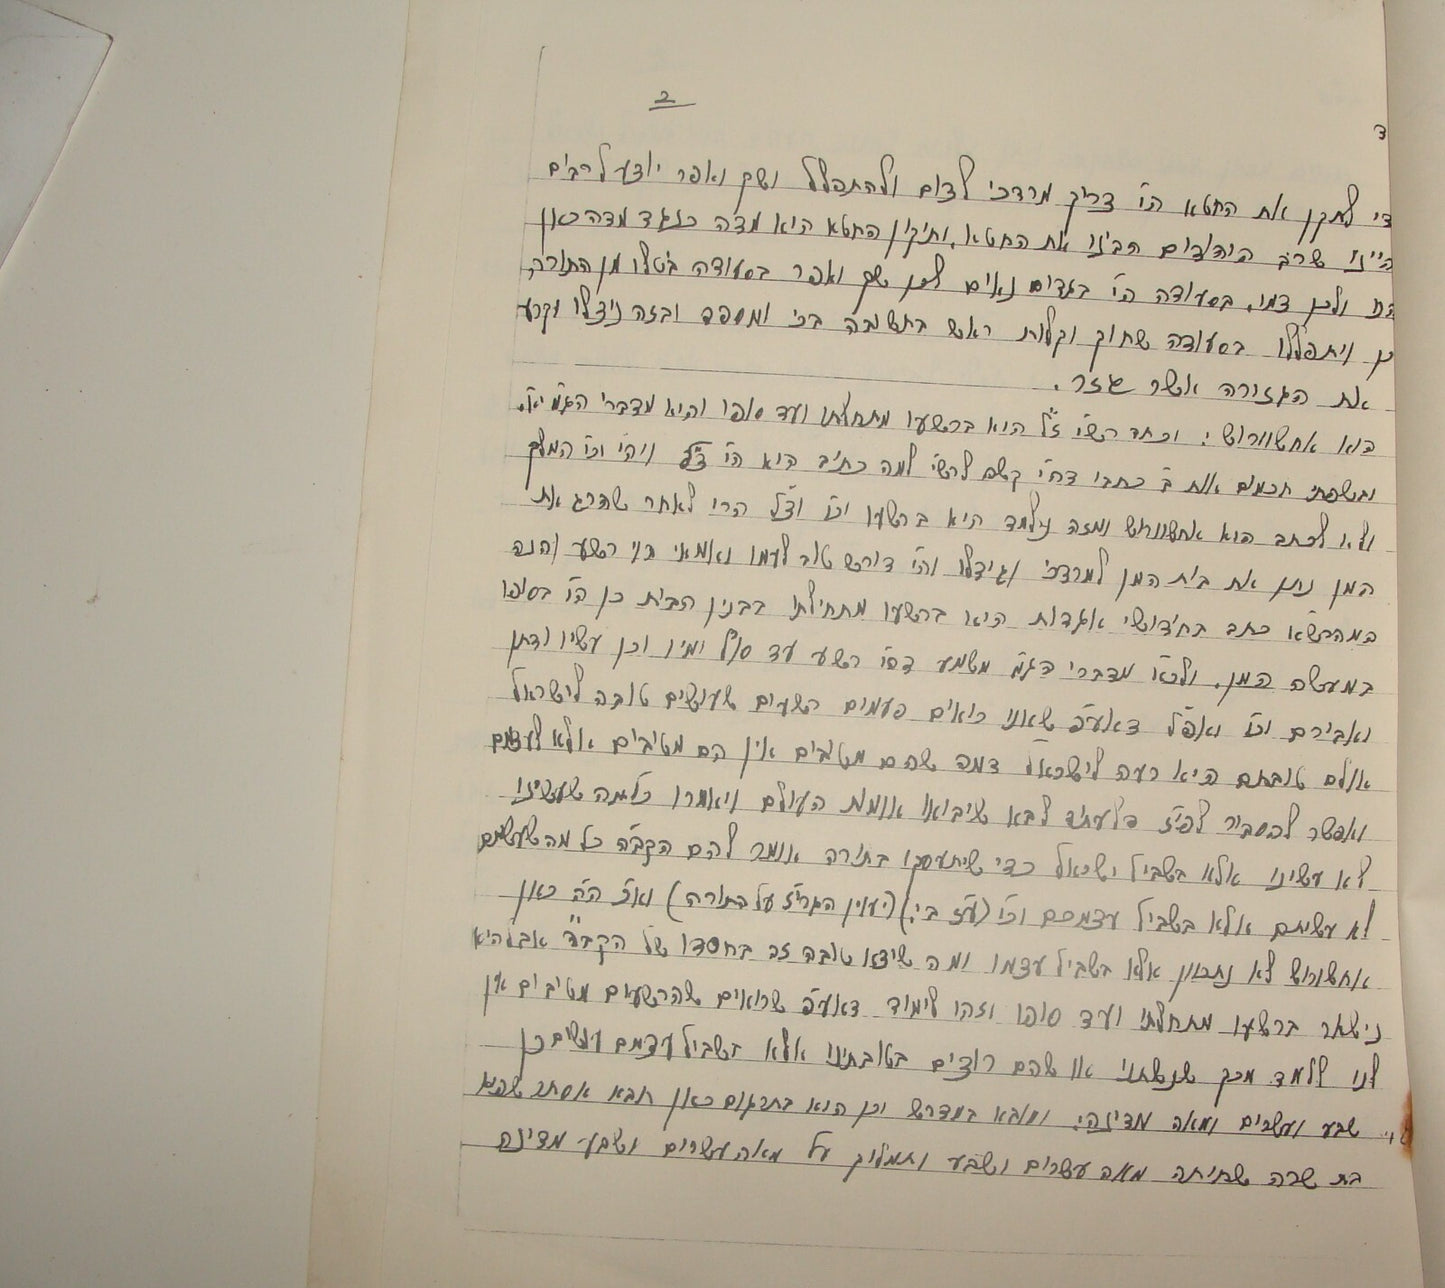 ב
כדי לתקן את החטא הי' צריך מרדכי לצום ולהתפלל ושק ואפר יוצע לרבים
היינו שרוב היהודים הבינו את החטא, ותיקון החטא הוא מדה כנגד מדה כאן
ולכן צמו, בסעודה הי' בגדים נאים לכן שק ואפר בסעודה ביטלו מן התורה
כן ויתפללו בסעודה שחוק וקלות ראש בתשובה בכי ומספד ובזה ניצלו וקרע
את הגזורה אשר גזר.
הוא אחשורוש: וכתב רש"י ז"ל הוא ברשעו מתחלתו ועד סופו והוא מדברי הגמ'
ובשפתי חכמים אות ב' כתבי דהי' קשה לרש"י למה כתיב הוא הי' צ"ל ויהי וכו' המלך
ולא לכתב הוא אחשורוש ומזה נילמד הוא ברשעו וכו' וצ"ל הרי לאחר שהרג את
המן נתן את בית המן למרדכי וגידלו והי' דורש טוב לעמו ואמאי הוי רשע והנה
במהרש"א כתב בחידושי אגדות הוא ברשעו מתחילתו בבנין הבית כן הי' בסופו
במעשה המן. ולכאו' מדברי הגמ' משמע דהי' רשע עד סוף ימיו וכן עשיו ודתן
ואבירם וכו' ואפ"ל דאע"פ שאנו רואים פעמים רשעים שעושים טובה לישראל
אולם טובתם היא רעה לישראל דמה שהם מטיבים אין הם מטיבים אלא לעצמם
ואפשר להסביר לפי"ז דלעתיד לבא שיבואו אומות העולם ויאמרו כל מה שעשינו
לא עשינו אלא בשביל ישראל כדי שיתעסקו בתורה אומר להם הקב"ה כל מה שעשיתם
לא עשיתם אלא בשביל עצמכם וכו' (ע"ז ב':) (יעוין הגרי"ז על התורה) וא"כ ה"ה כאן
אחשורוש לא נתכוון אלא בשביל עצמו ומה שיצא טובה זה בחסדו של הקב"ה אבל הוא
נישאר ברשעו מתחלתו ועד סופו וזהו לימוד דאע"פ שרואים שהרשעים מטיבים אין
לנו ללמד מכך שנשתנו או שהם רוצים בטובתינו אלא בשביל עצמם עושים כן
שבע ועשרים ומאה מדינה: ומובא במדרש וכן הוא בתרגום כאן תבא אסתר שהיא
בת שרה שחיתה מאה עשרים ושבע ותמלוך על מאה עשרים ושבע מדינה